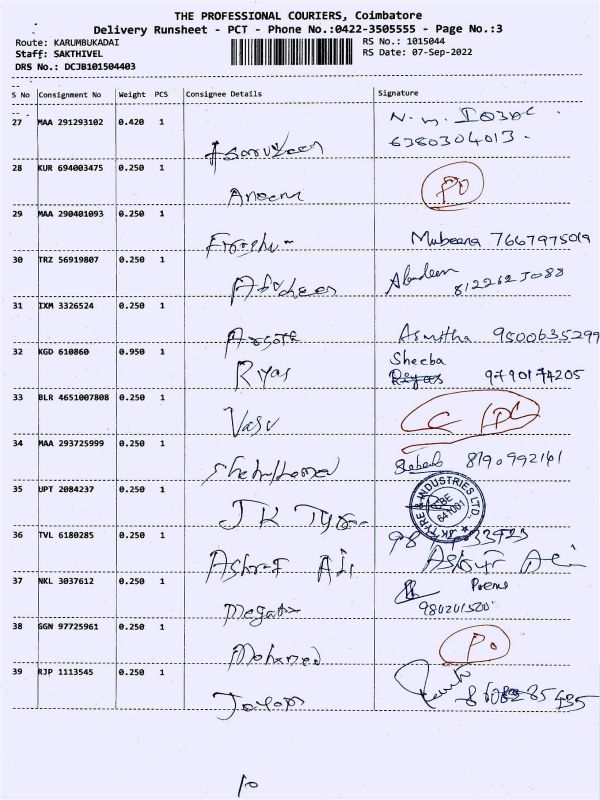 THE PROFESSIONAL COURIERS, Coimbatore
Delivery Runsheet - PCT - Phone No.:0422-3505555 - Page No.:3
Route: KARUMBUKADAI
RS No.: 1015044
Staff: SAKTHIVEL
RS Date: 07-Sep-2022
DRS No.: DCJB101504403
S No Consignment No Weight PCS Consignee Details Signature
27 MAA 291293102 0.420 1 N. M. IQBAL
6380304013.
28 KUR 694003475 0.250 1
Aneem Po
29 MAA 290401093 0.250 1
Mubeena 7667975019
30 TRZ 56919807 0.250 1
Abudeen
31 IXM 3326524 0.250 1
Arsath Asmitha 9500635299
32 KGD 610860 0.950 1 Sheeba
Riyas Riyas 9790174205
33 BLR 4651007808 0.250 1
Vasu
34 MAA 293725999 0.250 1
8190992141
35 UPT 2084237 0.250 1
JK Tyre JK TYRE & INDUSTRIES LTD. CBE 641001
36 TVL 6180285 0.250 1
Ashraf Ali
37 NKL 3037612 0.250 1
38 GGN 97725961 0.250 1
Mohamed Po
39 RJP 1113545 0.250 1
10